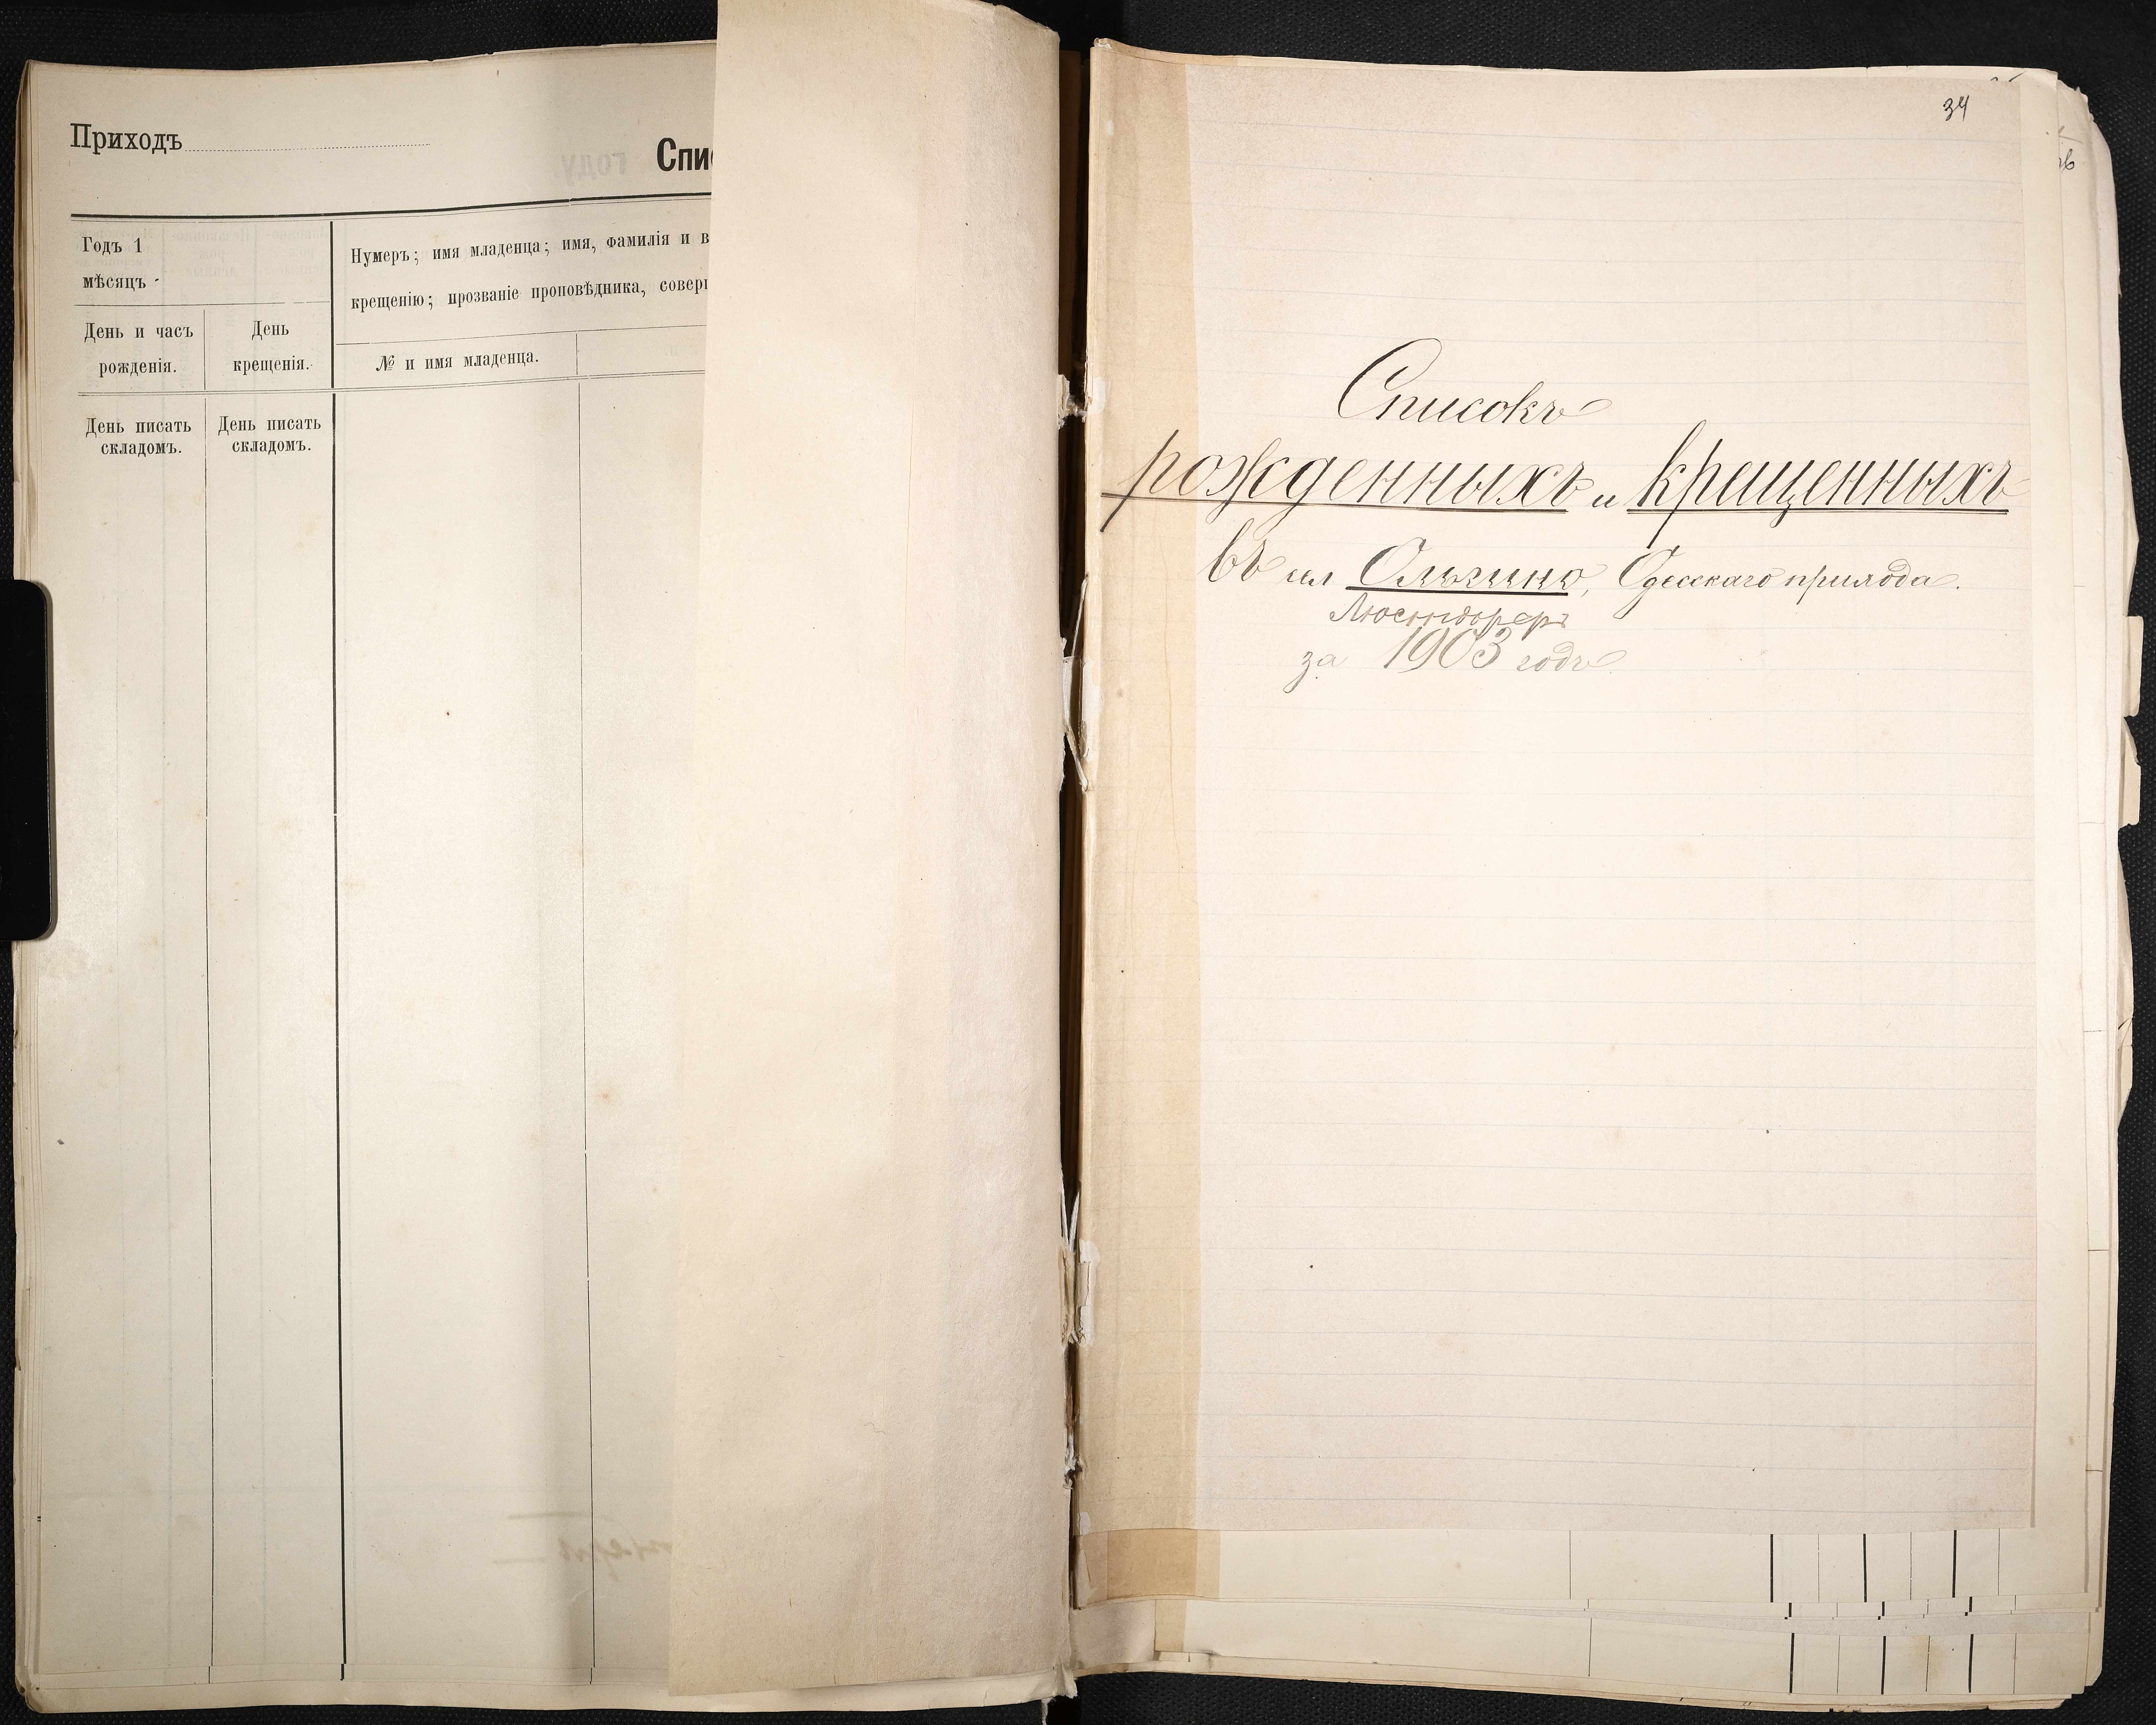 Приходъ
Спи
Годъ 1
мѣсяцъ
Нумеръ; имя младенца; имя, фамилія и в
крещенію; прозваніе проповѣдника, совер
День и часъ
рожденія.
День
крещенія.
№ и имя младенца.
День писать
складомъ.
День писать
складомъ.
34
Списокъ
рожденныхъ и крещенныхъ
въ Ольгино, Одесскаго прихода.
Люстдорфъ
за 1903 годъ